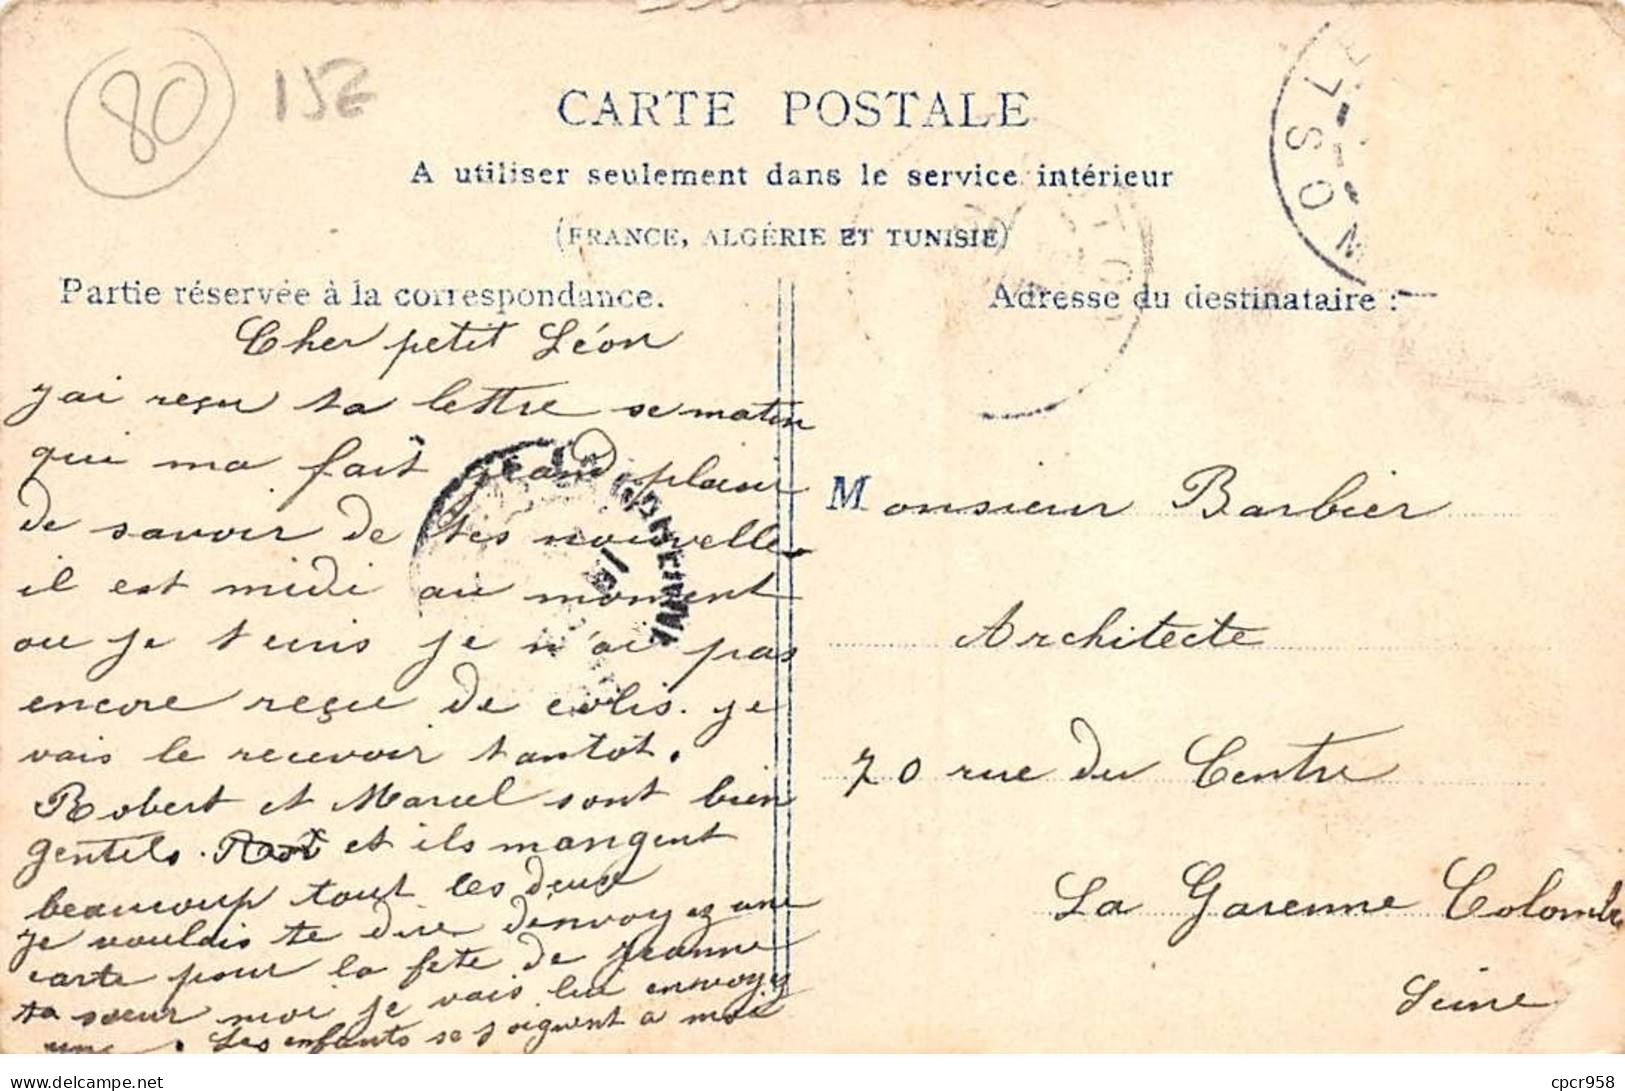 80
CARTE POSTALE
A utiliser seulement dans le service intérieur
(FRANCE, ALGÉRIE ET TUNISIE)
Partie réservée à la correspondance.
Adresse du destinataire :
Cher petit Léon
j'ai reçu ta lettre se matin
qui ma fait grand plaisir
de savoir de tes nouvelles
il est midi au moment
ou je t'cris je n'ai pas
encore reçu de colis. je
vais le recevoir tantôt.
Robert et Marcel sont bien
gentils. et ils mangent
beaucoup tout les deux
je voulais te dire d'envoyez une
carte pour la fete de Jeanne
ta sœur moi je vais lui envoyez
une. Les enfants se soignent a
Monsieur Barbier
Architecte
70 rue du Centre
La Garenne Colombe
Seine
MONSLE
LA GARENNE
delcampe.net
cpcr958